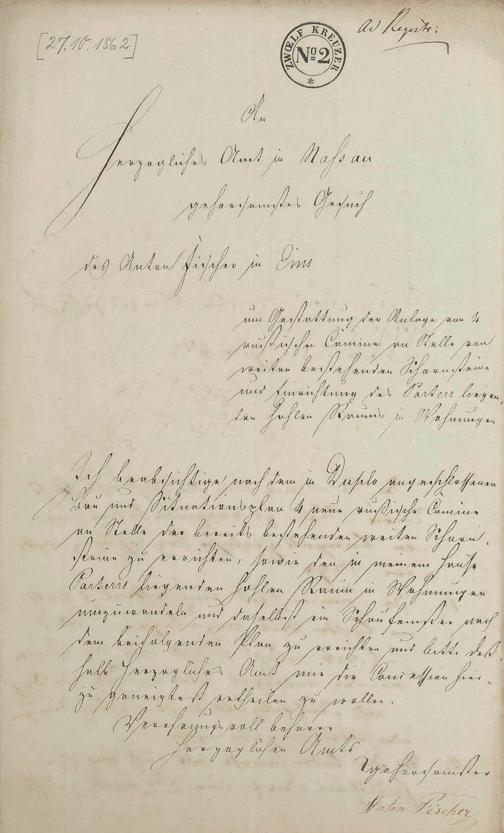 [27.10.1862]
ZWOELF KREUZER
No 2
ad Registr:
An
Herzogliches Amt in Nassau
gehorsamstes Gesuch
des Anton Fischer in Ems
um Gestattung der Anlage von 4
russischen Camine an Stelle von
weiten bestehenden Schornsteine
und Einrichtung des Parterr liegen,
den hohlen Raums in Wohnungen
Ich beabsichtige nach dem in Duplo angeschlossenen
Bau und Situationsplan 4 neue russische Camine
an Stelle der bereits bestehenden weiten Schorn-
steine zu errichten, sowie den in meinem Hause
Parterre liegenden hohlen Raum in Wohnungen
umzuwandeln und daselbst ein Schaufenster nach
dem beifolgenden Plan zu errichten und bitte deß
halb Herzogliches Amt mir die Concession hier-
zu geneigtest ertheilen zu wollen.
Verehrungsvoll beharre
Herzoglichen Amts
gehorsamster
Anton Fischer